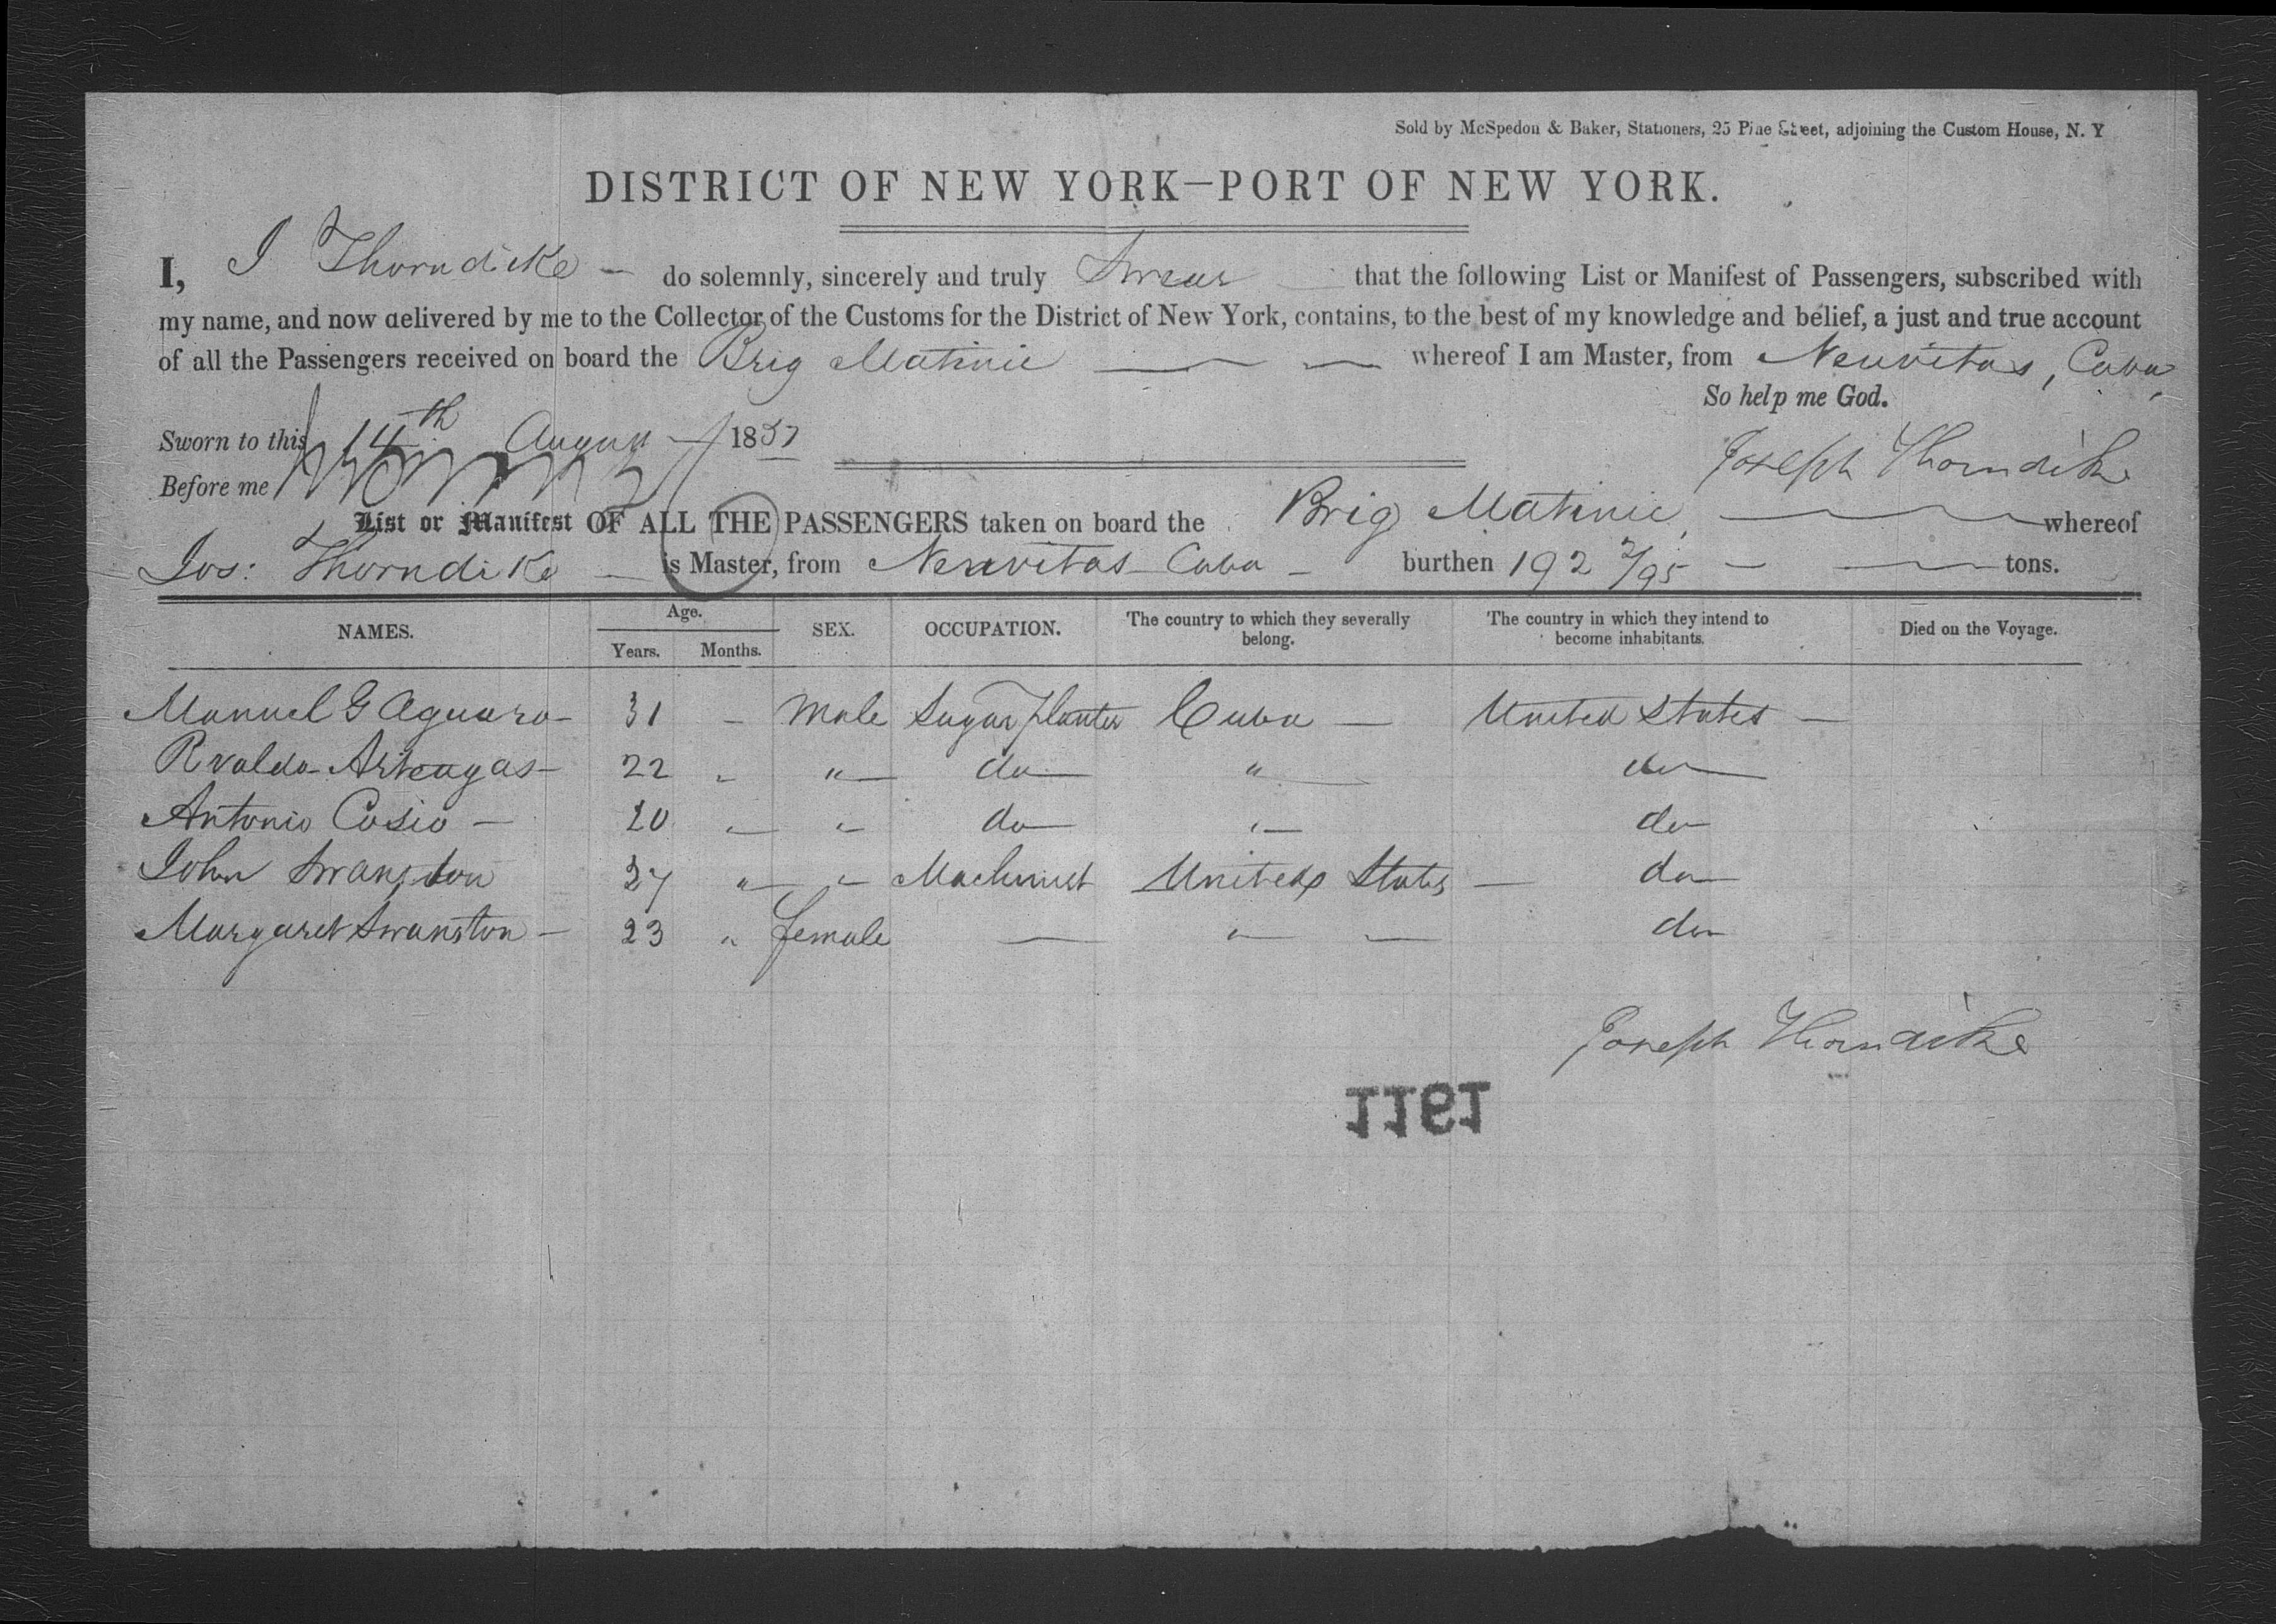 Sold by McSpedon & Baker, Stationers, 25 Pine Street, adjoining the Custom House, N. Y
DISTRICT OF NEW YORK—PORT OF NEW YORK.
I, J Thorndike — do solemnly, sincerely and truly Swear — that the following List or Manifest of Passengers, subscribed with
my name, and now delivered by me to the Collector of the Customs for the District of New York, contains, to the best of my knowledge and belief, a just and true account
of all the Passengers received on board the Brig Matinic — — whereof I am Master, from Neuvitas, Cuba
So help me God.
Sworn to this 14th August 1857
Joseph Thorndike
Before me
List or Manifest OF ALL THE PASSENGERS taken on board the Brig Matinic — whereof
Jos: Thorndike — is Master, from Neuvitas Cuba — burthen 192 2/95 — — tons.
NAMES. Age. Years. Months. SEX. OCCUPATION. The country to which they severally belong. The country in which they intend to become inhabitants. Died on the Voyage.
Manuel G Aguaro — 31 — Male Sugar planter Cuba — United States —
Rvaldo Arteagas — 22 " " — do — " — do —
Antonio Cosio — 20 " — " do — " — do
John Swanston 27 " — " Machinist United States — do
Margaret Swanston — 23 " female — " — — do
Joseph Thorndike
1191